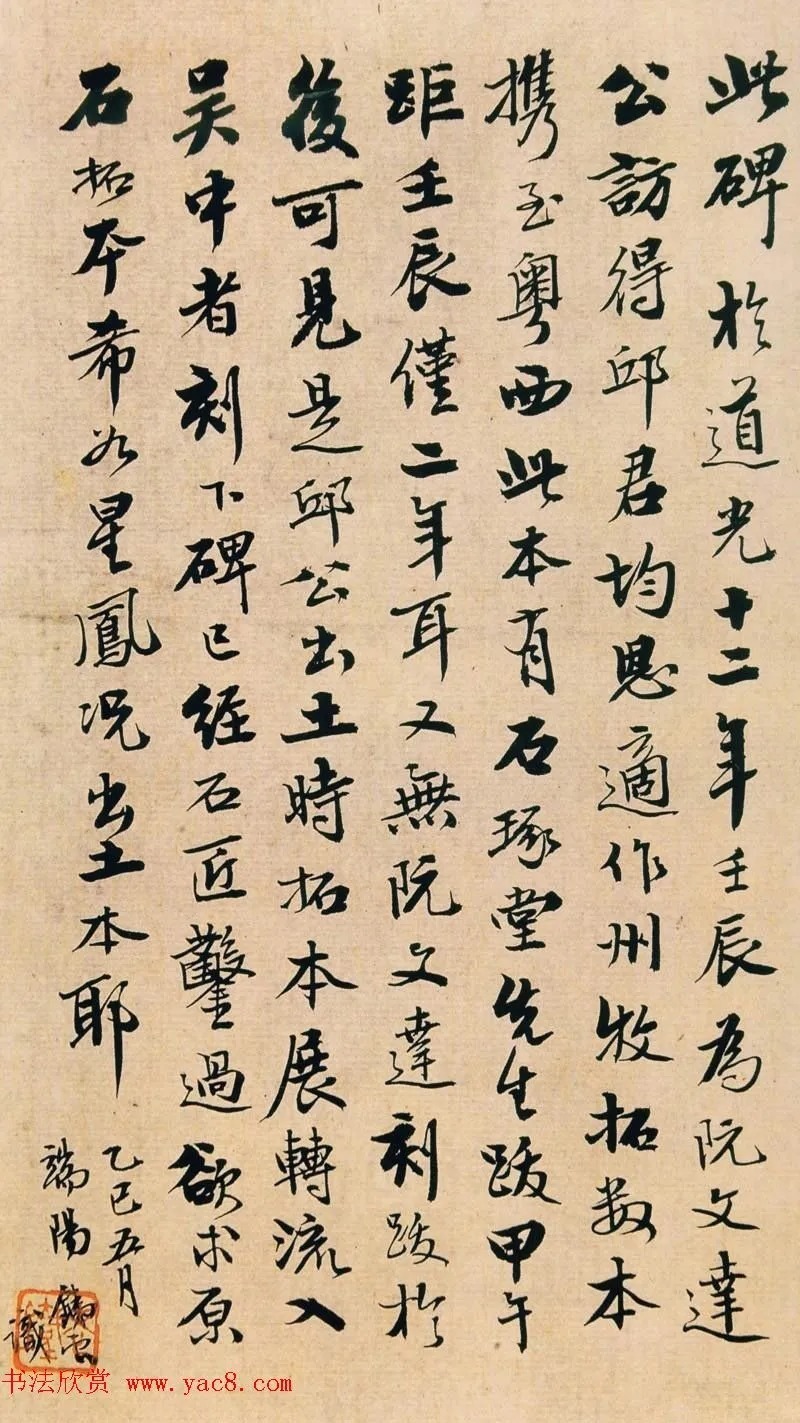 此碑於道光十二年壬辰為阮文達
公訪得邱君均恩適作州牧拓数本
攜至粵西此本有石琢堂先生跋甲午
距壬辰僅二年耳又無阮文達刻跋於
後可見是邱公出土時拓本展轉流入
吴中者刻下碑已經石匠鑿過欲求原
石拓本希如星鳳况出土本耶
乙巳五月
端陽鐵雲
識
书法欣赏 www.yac8.com